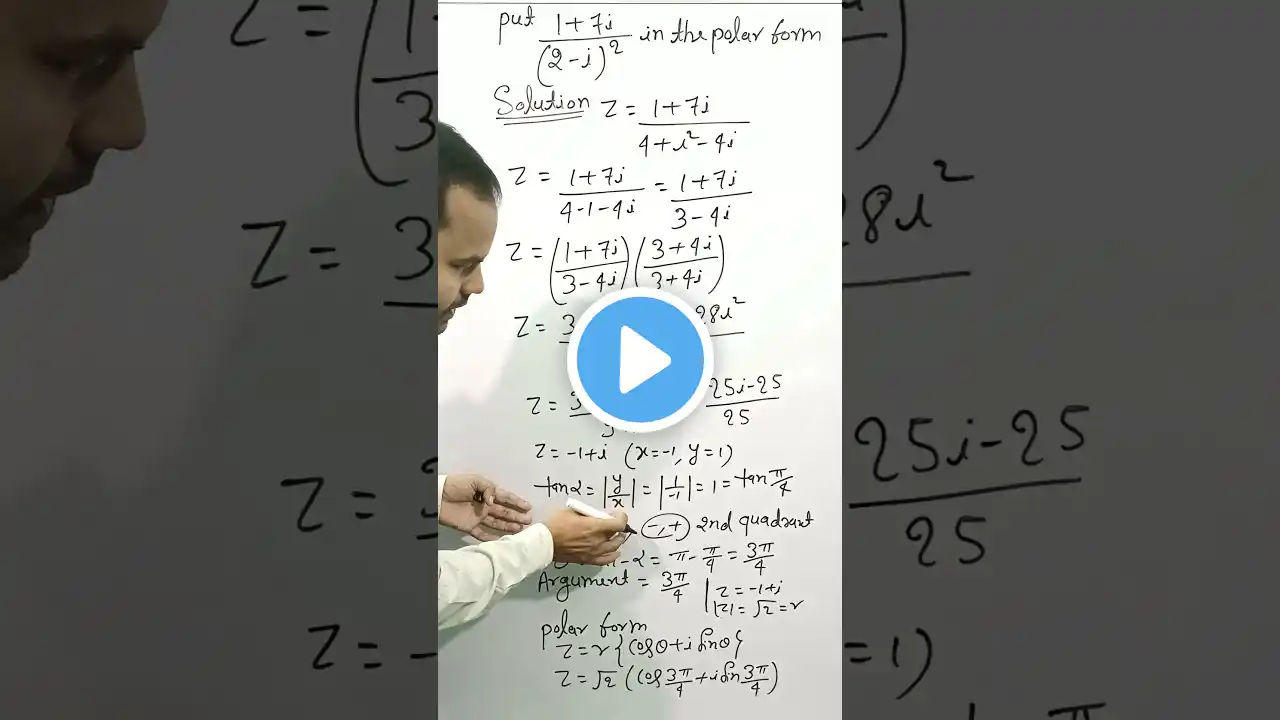 put (1+7i)/(2-i)² in the polar form
Solution z = (1+7i)/(4+i²-4i)
z = (1+7i)/(4-1-4i) = (1+7i)/(3-4i)
z = ((1+7i)/(3-4i)) ((3+4i)/(3+4i))
z = 3 28i²
z = 3 25i-25/25
z = -1+i (x=-1, y=1)
tan α = |y/x| = |1/-1| = 1 = tan π/4
(-,+) 2nd quadrant
-α = π - π/4 = 3π/4
Argument = 3π/4 | z = -1+i
|z| = √2 = r
polar form
z = r {cosθ + i sinθ}
z = √2 (cos 3π/4 + i sin 3π/4)